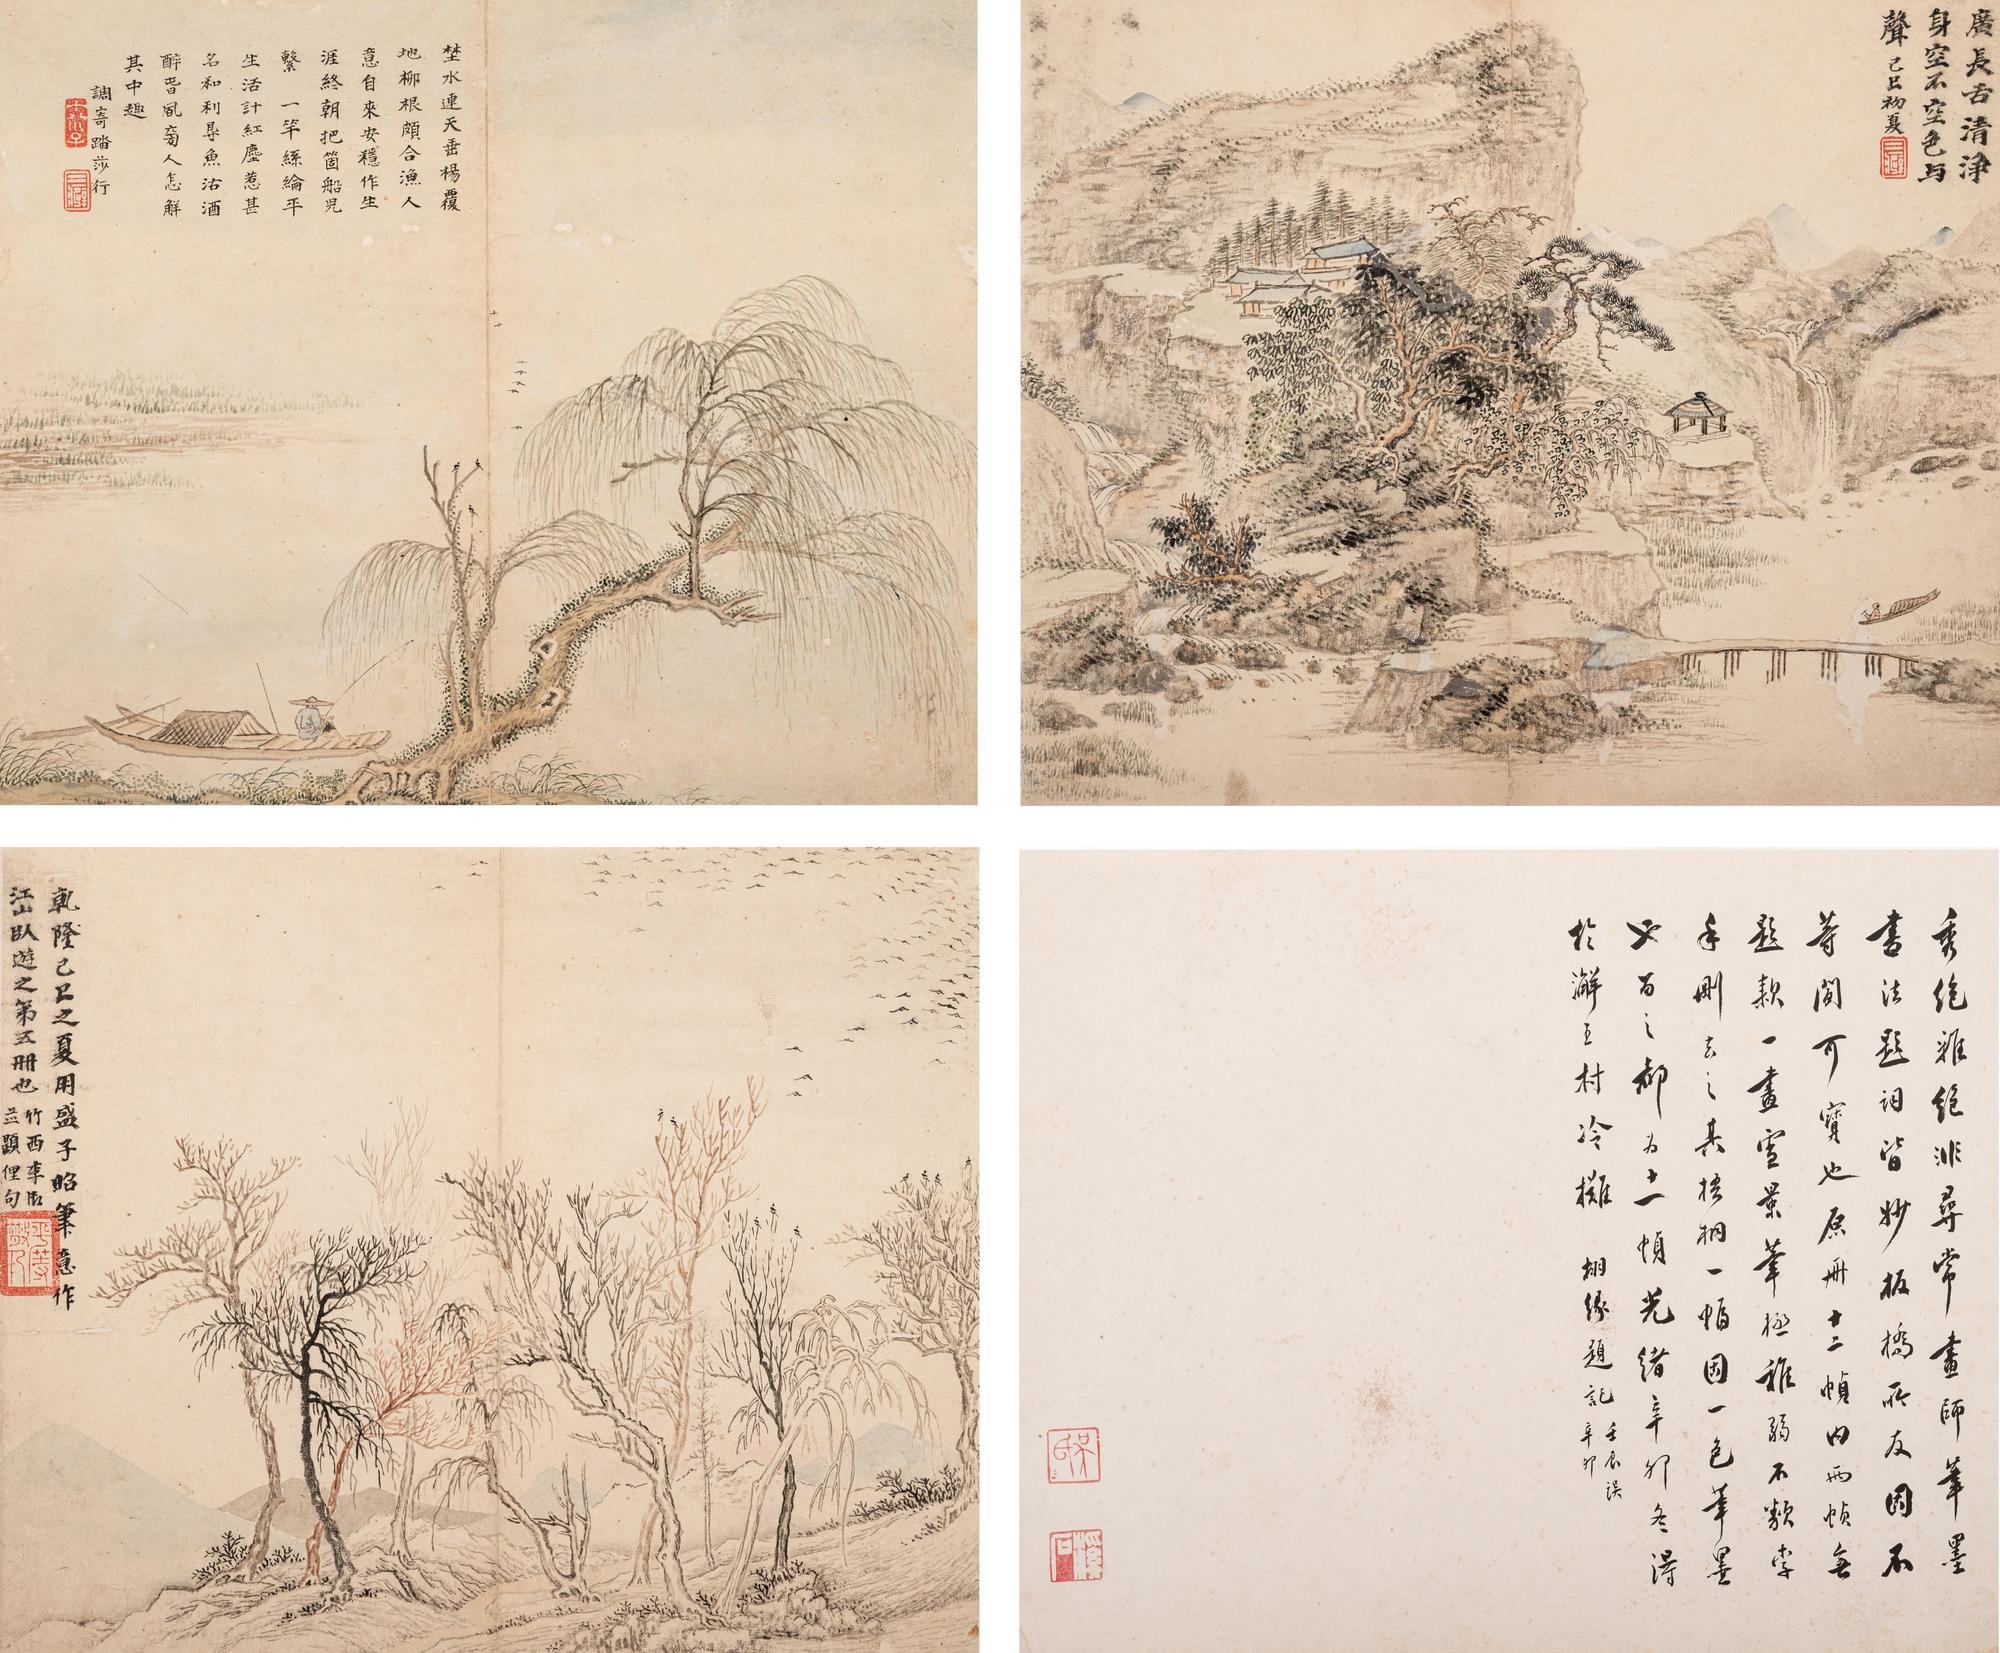 埜水連天垂楊覆
地柳根頗合漁人
意自來安穩作生
涯終朝把箇船兒
繫 一竿絲綸平
生活計紅塵惹甚
名和利㝵魚沽酒
醉昏昏旁人怎解
其中趣
調寄踏莎行
廣長舌清淨
身空不空色與
聲己巳初夏
乾隆己巳之夏用盛子昭筆意作
江山臥遊之第五冊也
竹西李
並題俚句
秀絕雅絕非尋常畫師筆墨
書法題詞皆妙板橋所友固不
等閒可寶也原冊十二幀內兩幀無
題款一畫雪景筆極稚弱不類李
手刪去之其梧桐一幅固一色筆墨
必留之都為十一幀光緒辛卯冬得
於澥王村冷攤 栩緣題記
壬辰誤
辛卯